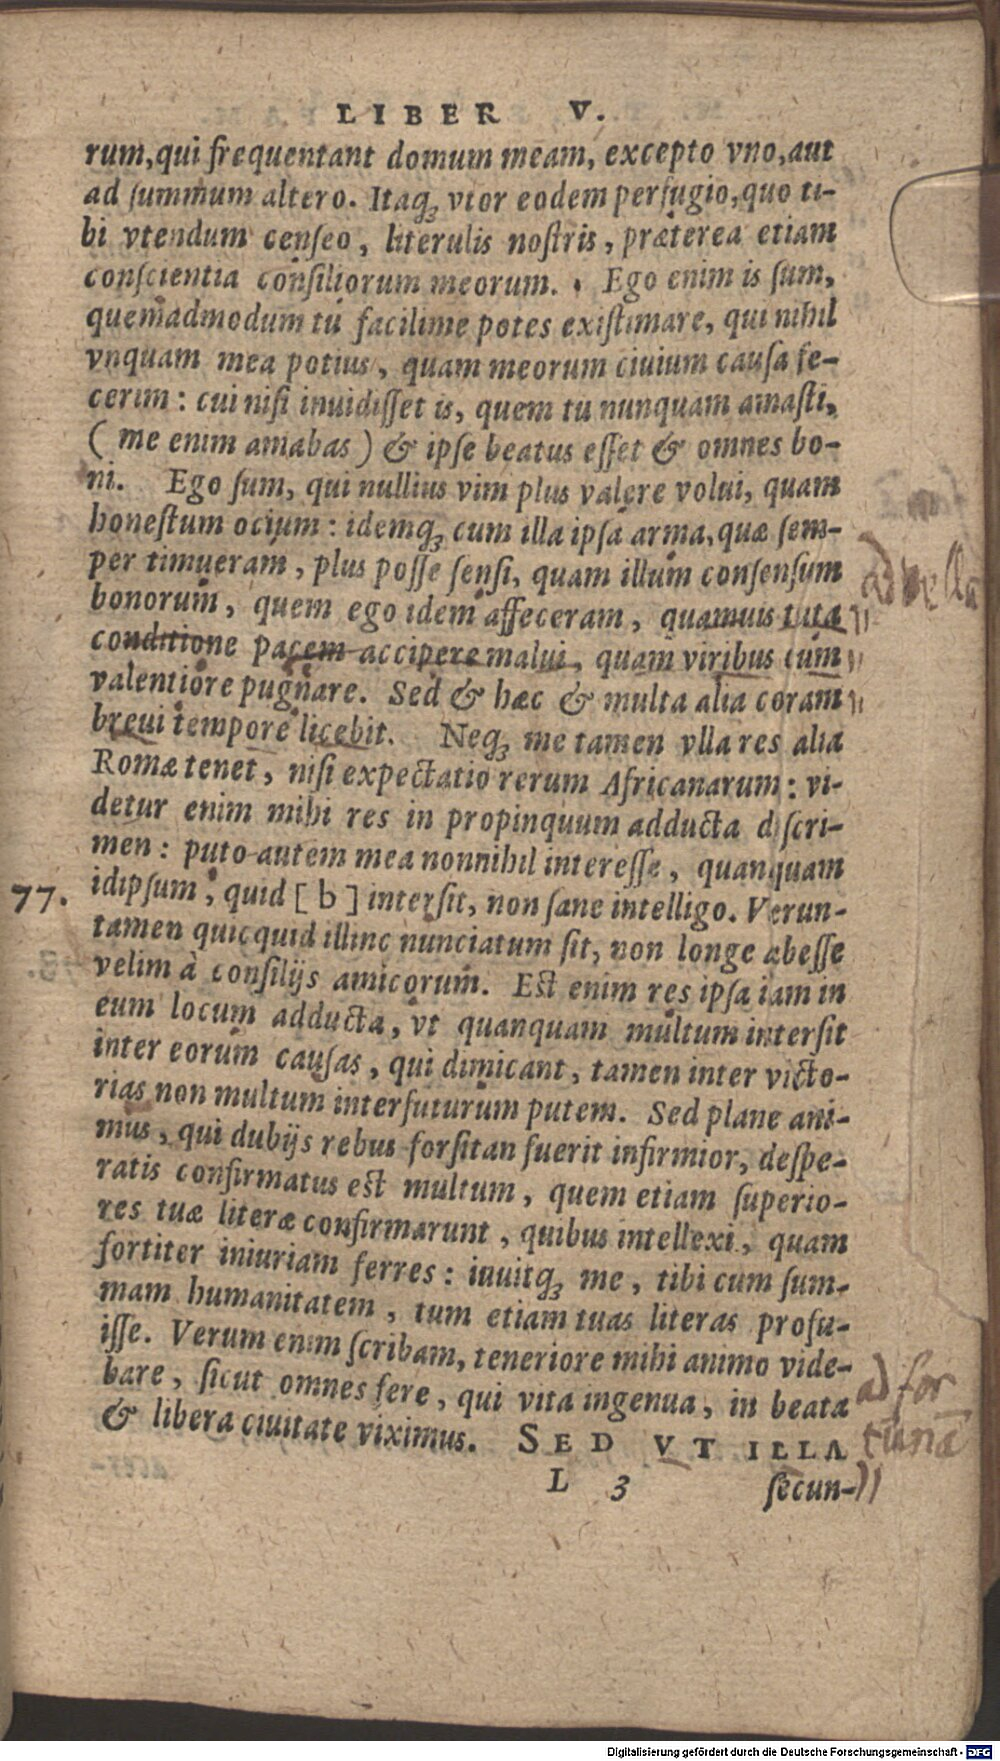 LIBER V.
rum, qui frequentant domum meam, excepto vno, aut
ad summum altero. Itaq; vtor eodem perfugio, quo ti-
bi vtendum censeo, literulis nostris, præterea etiam
conscientia consiliorum meorum. Ego enim is sum,
quemadmodum tu facilime potes existimare, qui nihil
vnquam mea potius, quam meorum ciuium causa fe-
cerim: cui nisi inuidisset is, quem tu nunquam amasti,
( me enim amabas ) & ipse beatus esset & omnes bo-
ni. Ego sum, qui nullius vim plus valere volui, quam
honestum ocium: idemq; cum illa ipsa arma, quæ sem-
per timueram, plus posse sensi, quam illum consensum
ad bella
bonorum, quem ego idem affeceram, quamuis tuta
conditione pacem accipere malui, quam viribus cum
valentiore pugnare. Sed & hæc & multa alia coram
breui tempore licebit. Neq; me tamen vlla res alia
Romæ tenet, nisi expectatio rerum Africanarum: vi-
detur enim mihi res in propinquum adducta discri-
men: puto autem mea nonnihil interesse, quanquam
77. idipsum, quid [ b ] intersit, non sane intelligo. Verun-
tamen quicquid illinc nunciatum sit, non longe abesse
velim à consilijs amicorum. Est enim res ipsa iam in
eum locum adducta, vt quanquam multum intersit
inter eorum causas, qui dimicant, tamen inter victo-
rias non multum interfuturum putem. Sed plane ani-
mus, qui dubijs rebus forsitan fuerit infirmior, despe-
ratis confirmatus est multum, quem etiam superio-
res tuæ literæ confirmarunt, quibus intellexi, quam
fortiter iniuriam ferres: iuuitq; me, tibi cum sum-
mam humanitatem, tum etiam tuas literas profu-
isse. Verum enim scribam, teneriore mihi animo vide-
bare, sicut omnes fere, qui vita ingenua, in beata
ad for
& libera ciuitate viximus. SED VT ILLA
tunā
L 3 secun-
Digitalisierung gefördert durch die Deutsche Forschungsgemeinschaft - DFG